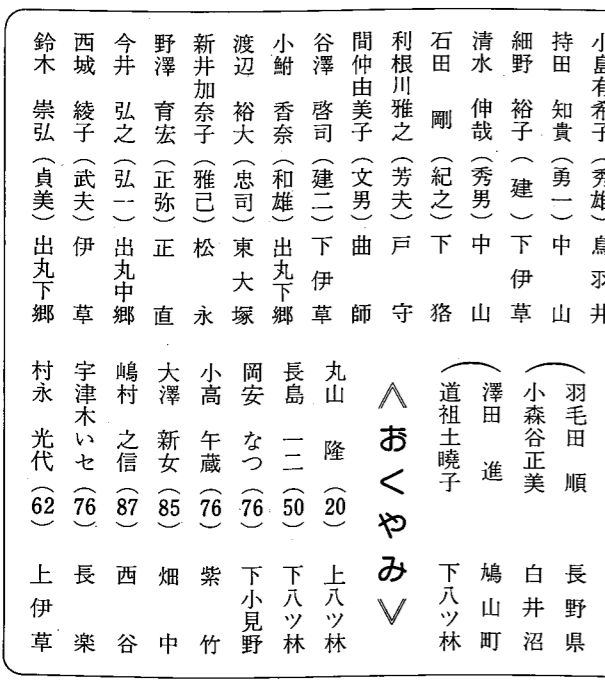 小島有希子（秀雄）鳥羽井
持田 知貴（勇一）中山
細野 裕子（建）下伊草
清水 伸哉（秀男）中山
石田 剛（紀之）下狢
利根川雅之（芳夫）戸守
間仲由美子（文男）曲師
谷澤 啓司（建二）下伊草
小鮒 香奈（和雄）出丸下郷
渡辺 裕大（忠司）東大塚
新井加奈子（雅己）松永
野澤 育宏（正弥）正直
今井 弘之（弘一）出丸中郷
西城 綾子（武夫）伊草
鈴木 崇弘（貞美）出丸下郷
羽毛田 順 長野県
小森谷正美 白井沼
澤田 進 鳩山町
道祖土曉子 下八ツ林
≪おくやみ≫
丸山 隆（20）上八ツ林
長島 一二（50）下八ツ林
岡安 なつ（76）下小見野
小高 午蔵（76）紫竹
大澤 新女（85）畑中
嶋村 之信（87）西谷
宇津木いセ（76）長楽
村永 光代（62）上伊草